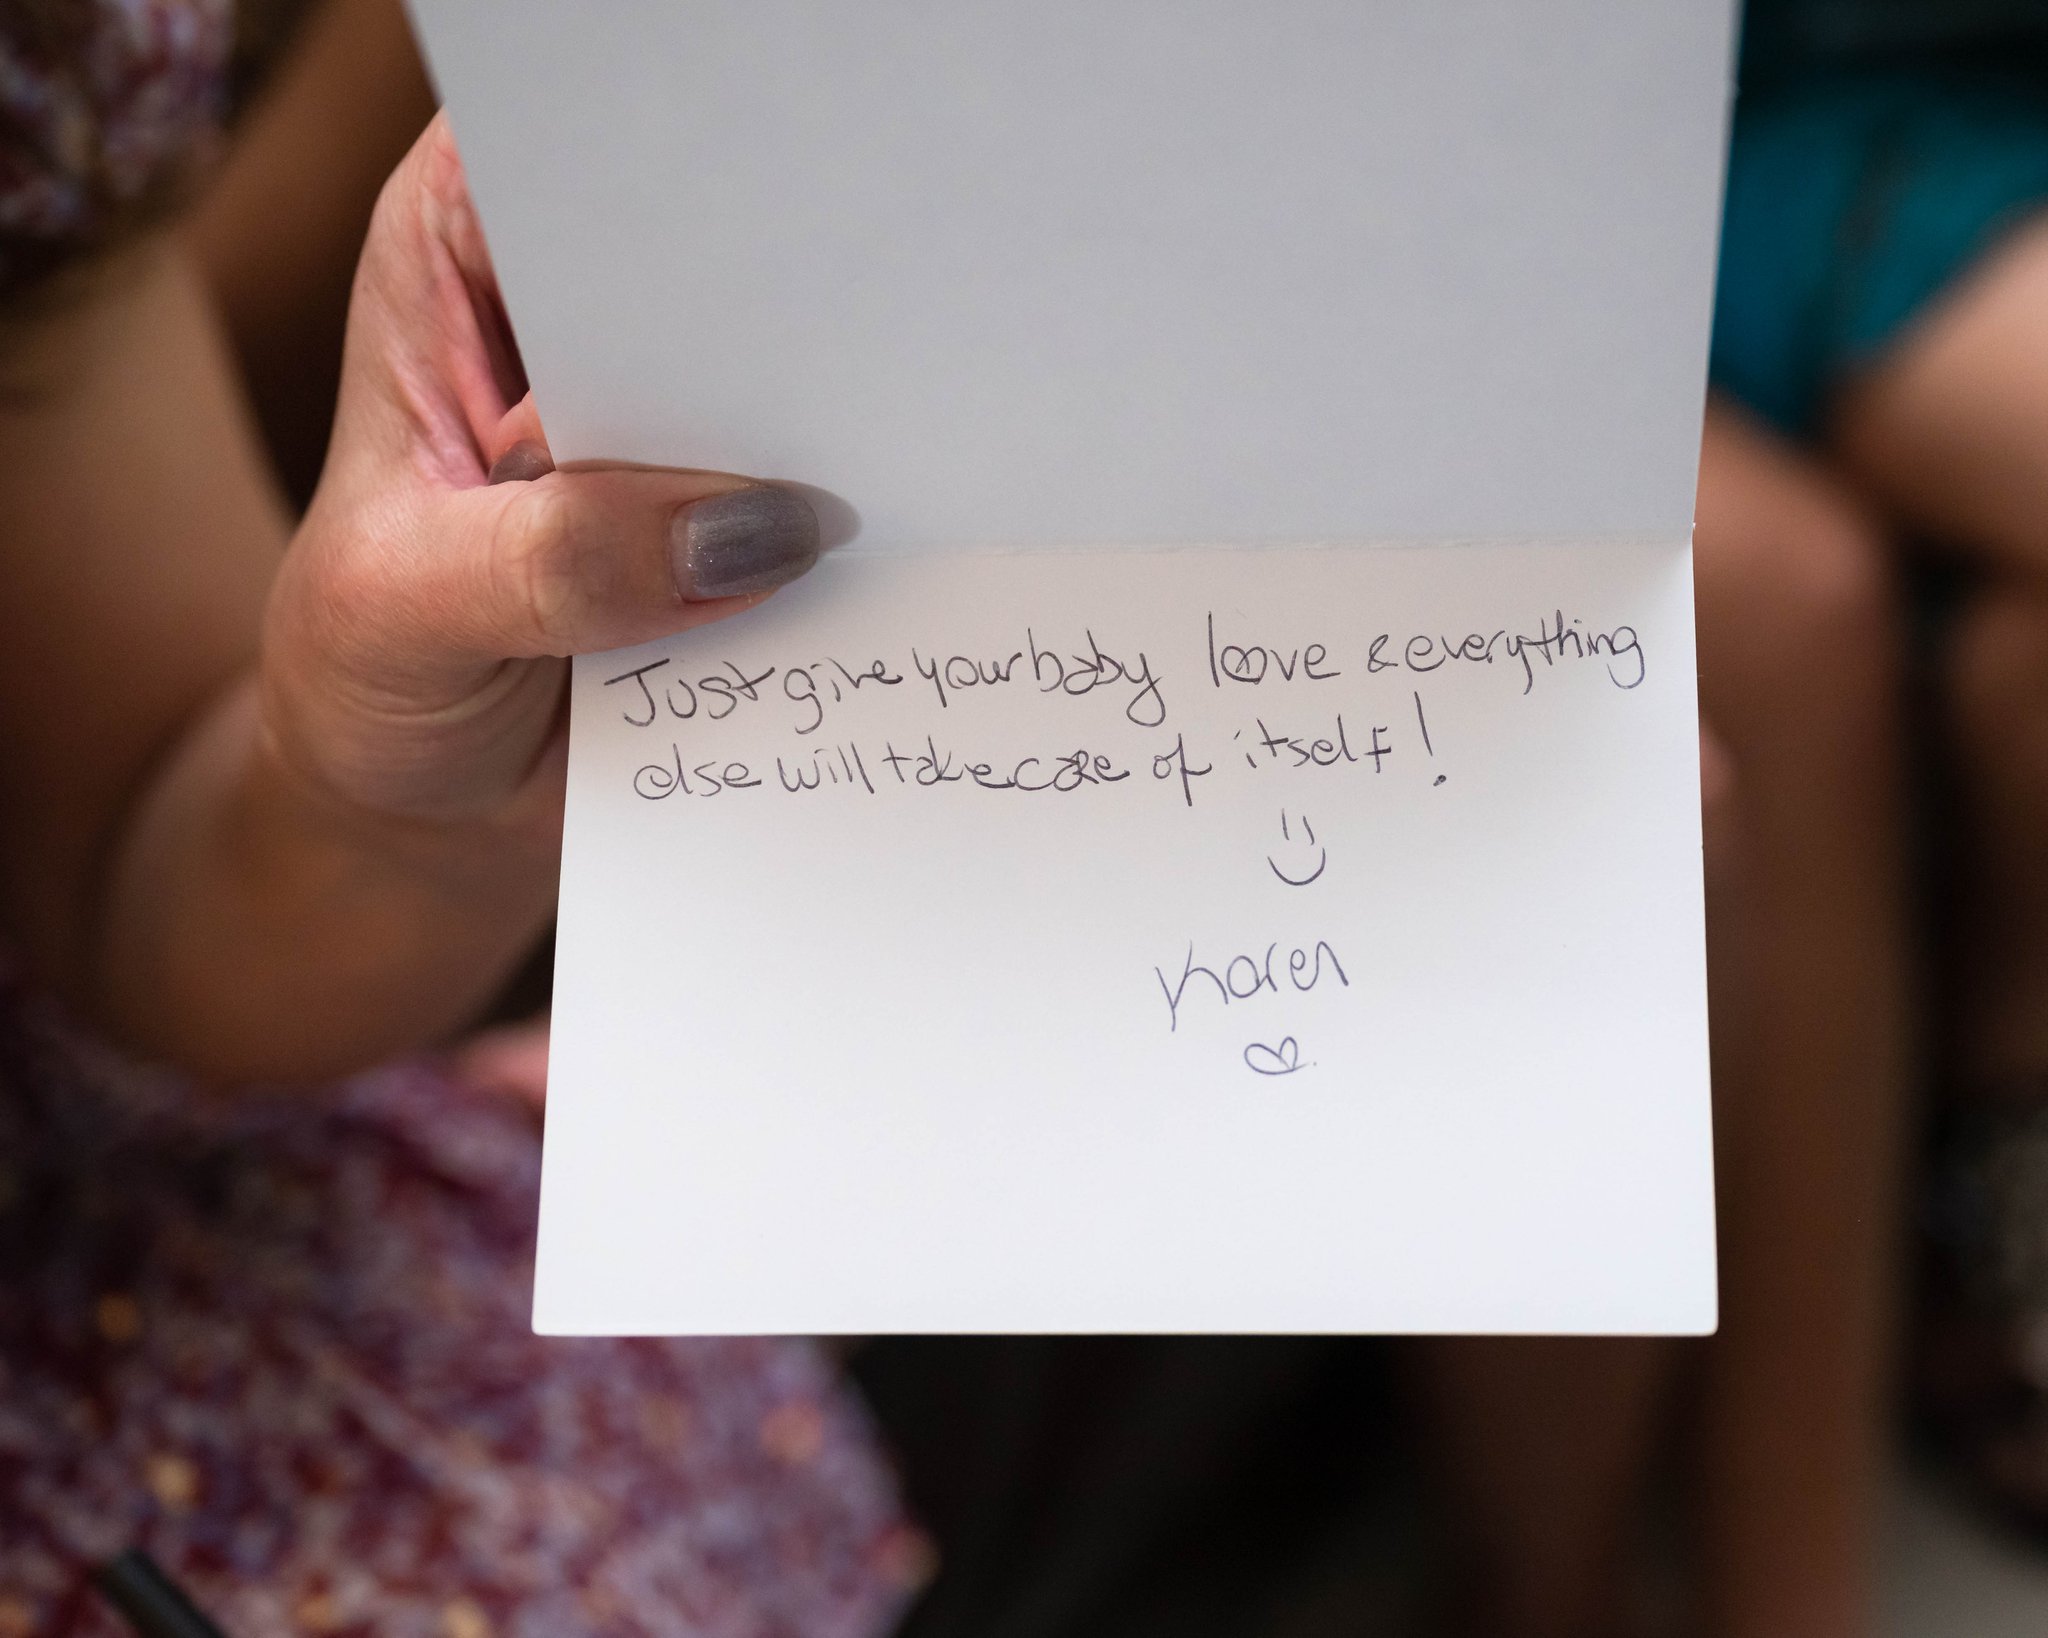 Just give your baby love & everything
else will take care of itself!
Karen